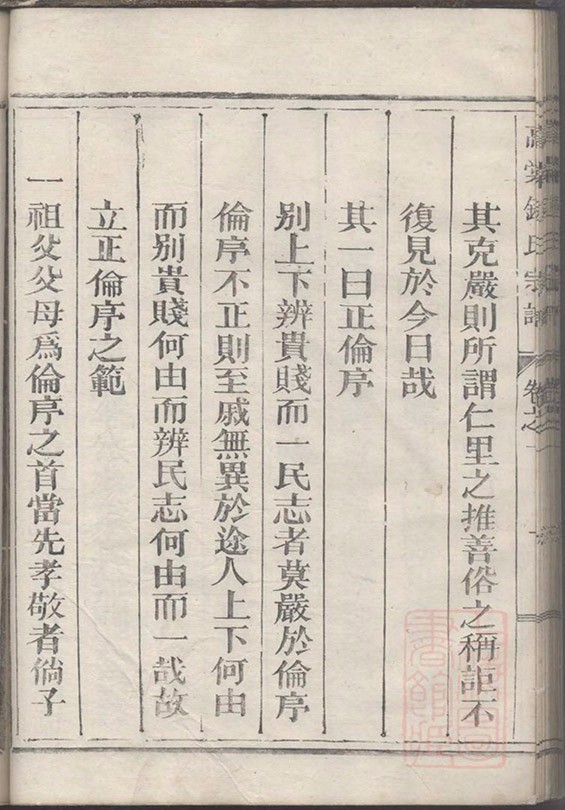 其克嚴則所謂仁里之推善俗之稱詎不
復見於今日哉
其一曰正倫序
別上下辨貴賤而一民志者莫嚴於倫序
倫序不正則至戚無異於途人上下何由
而別貴賤何由而辨民志何由而一哉故
立正倫序之範
一祖父父母爲倫序之首當先孝敬者倘子
氏宗譜
卷之